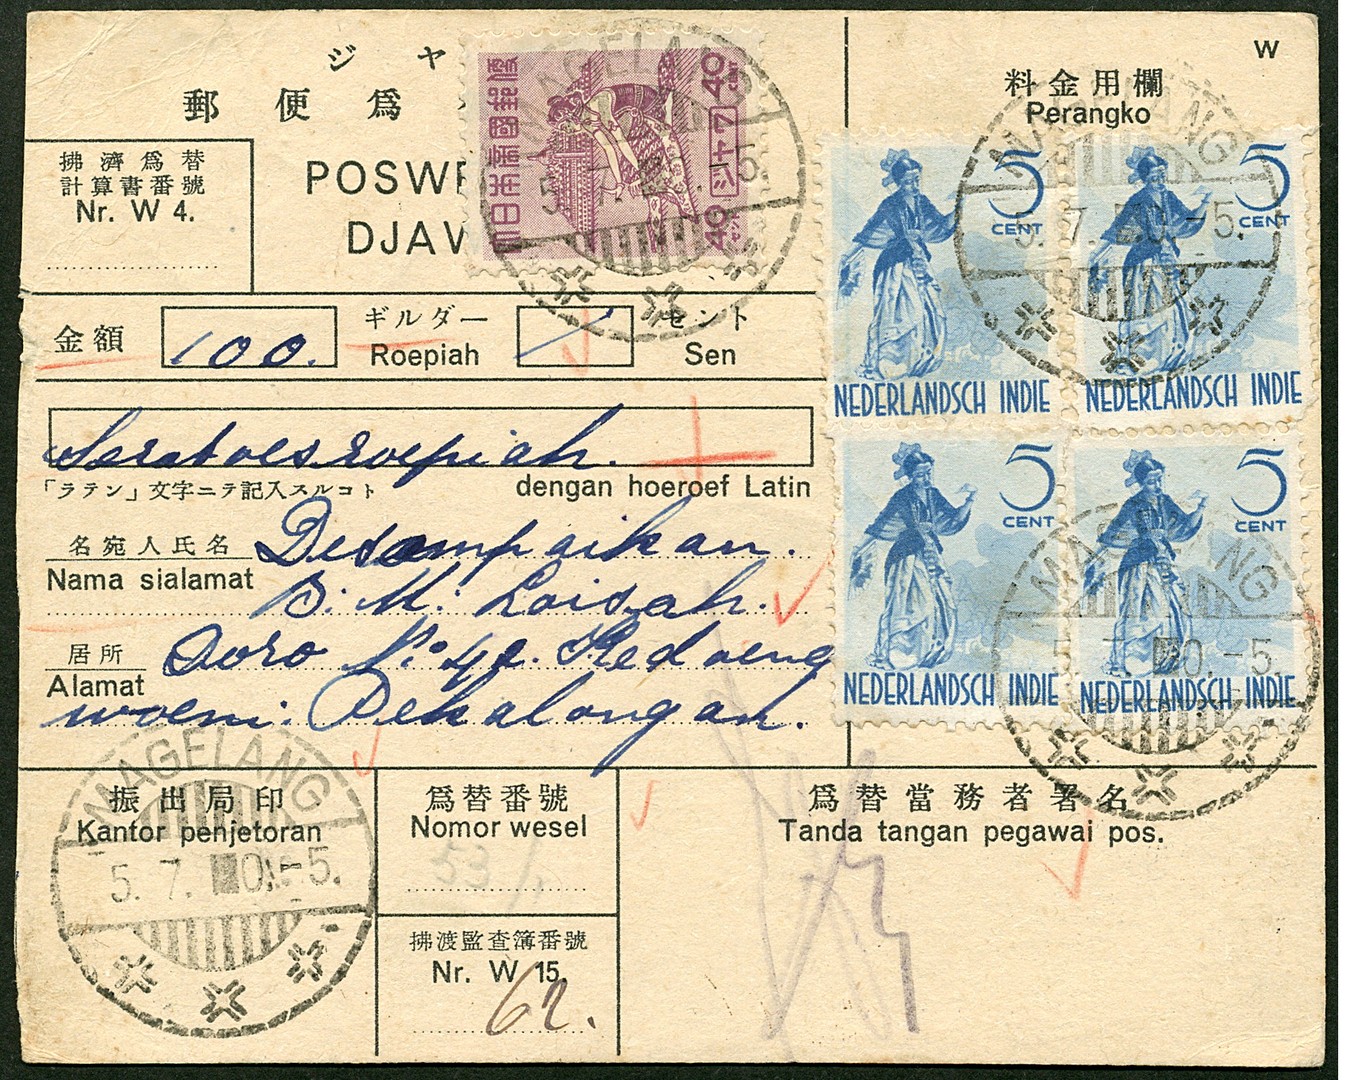 ジャ
郵便爲
拂濟爲替
計算書番號
Nr. W 4.
POSWE
DJAV
大日本帝國郵便
40
CENT
ジャワ
40
セント
MAGELANG
5. 7. 0. -5.
W
料金用欄
Perangko
5
CENT
NEDERLANDSCH INDIE
5
CENT
NEDERLANDSCH INDIE
MAGELANG
5. 7. 0. -5.
5
CENT
NEDERLANDSCH INDIE
5
CENT
NEDERLANDSCH INDIE
MAGELANG
5. 7. 0. -5.
金額
100.
ギルダー
Roepiah
セント
Sen
Seratoes roepiah.
「ラテン」文字ニテ記入スルコト
dengan hoeroef Latin
名宛人氏名
Nama sialamat
Desampaikan.
B. M. Loisah.
居所
Alamat
Doro No 42. Kedoeng
woeni. Pekalongan.
振出局印
Kantor penjetoran
MAGELANG
5. 7. 0. -5.
爲替番號
Nomor wesel
53
拂渡監査簿番號
Nr. W 15.
62.
爲替當務者署名
Tanda tangan pegawai pos.